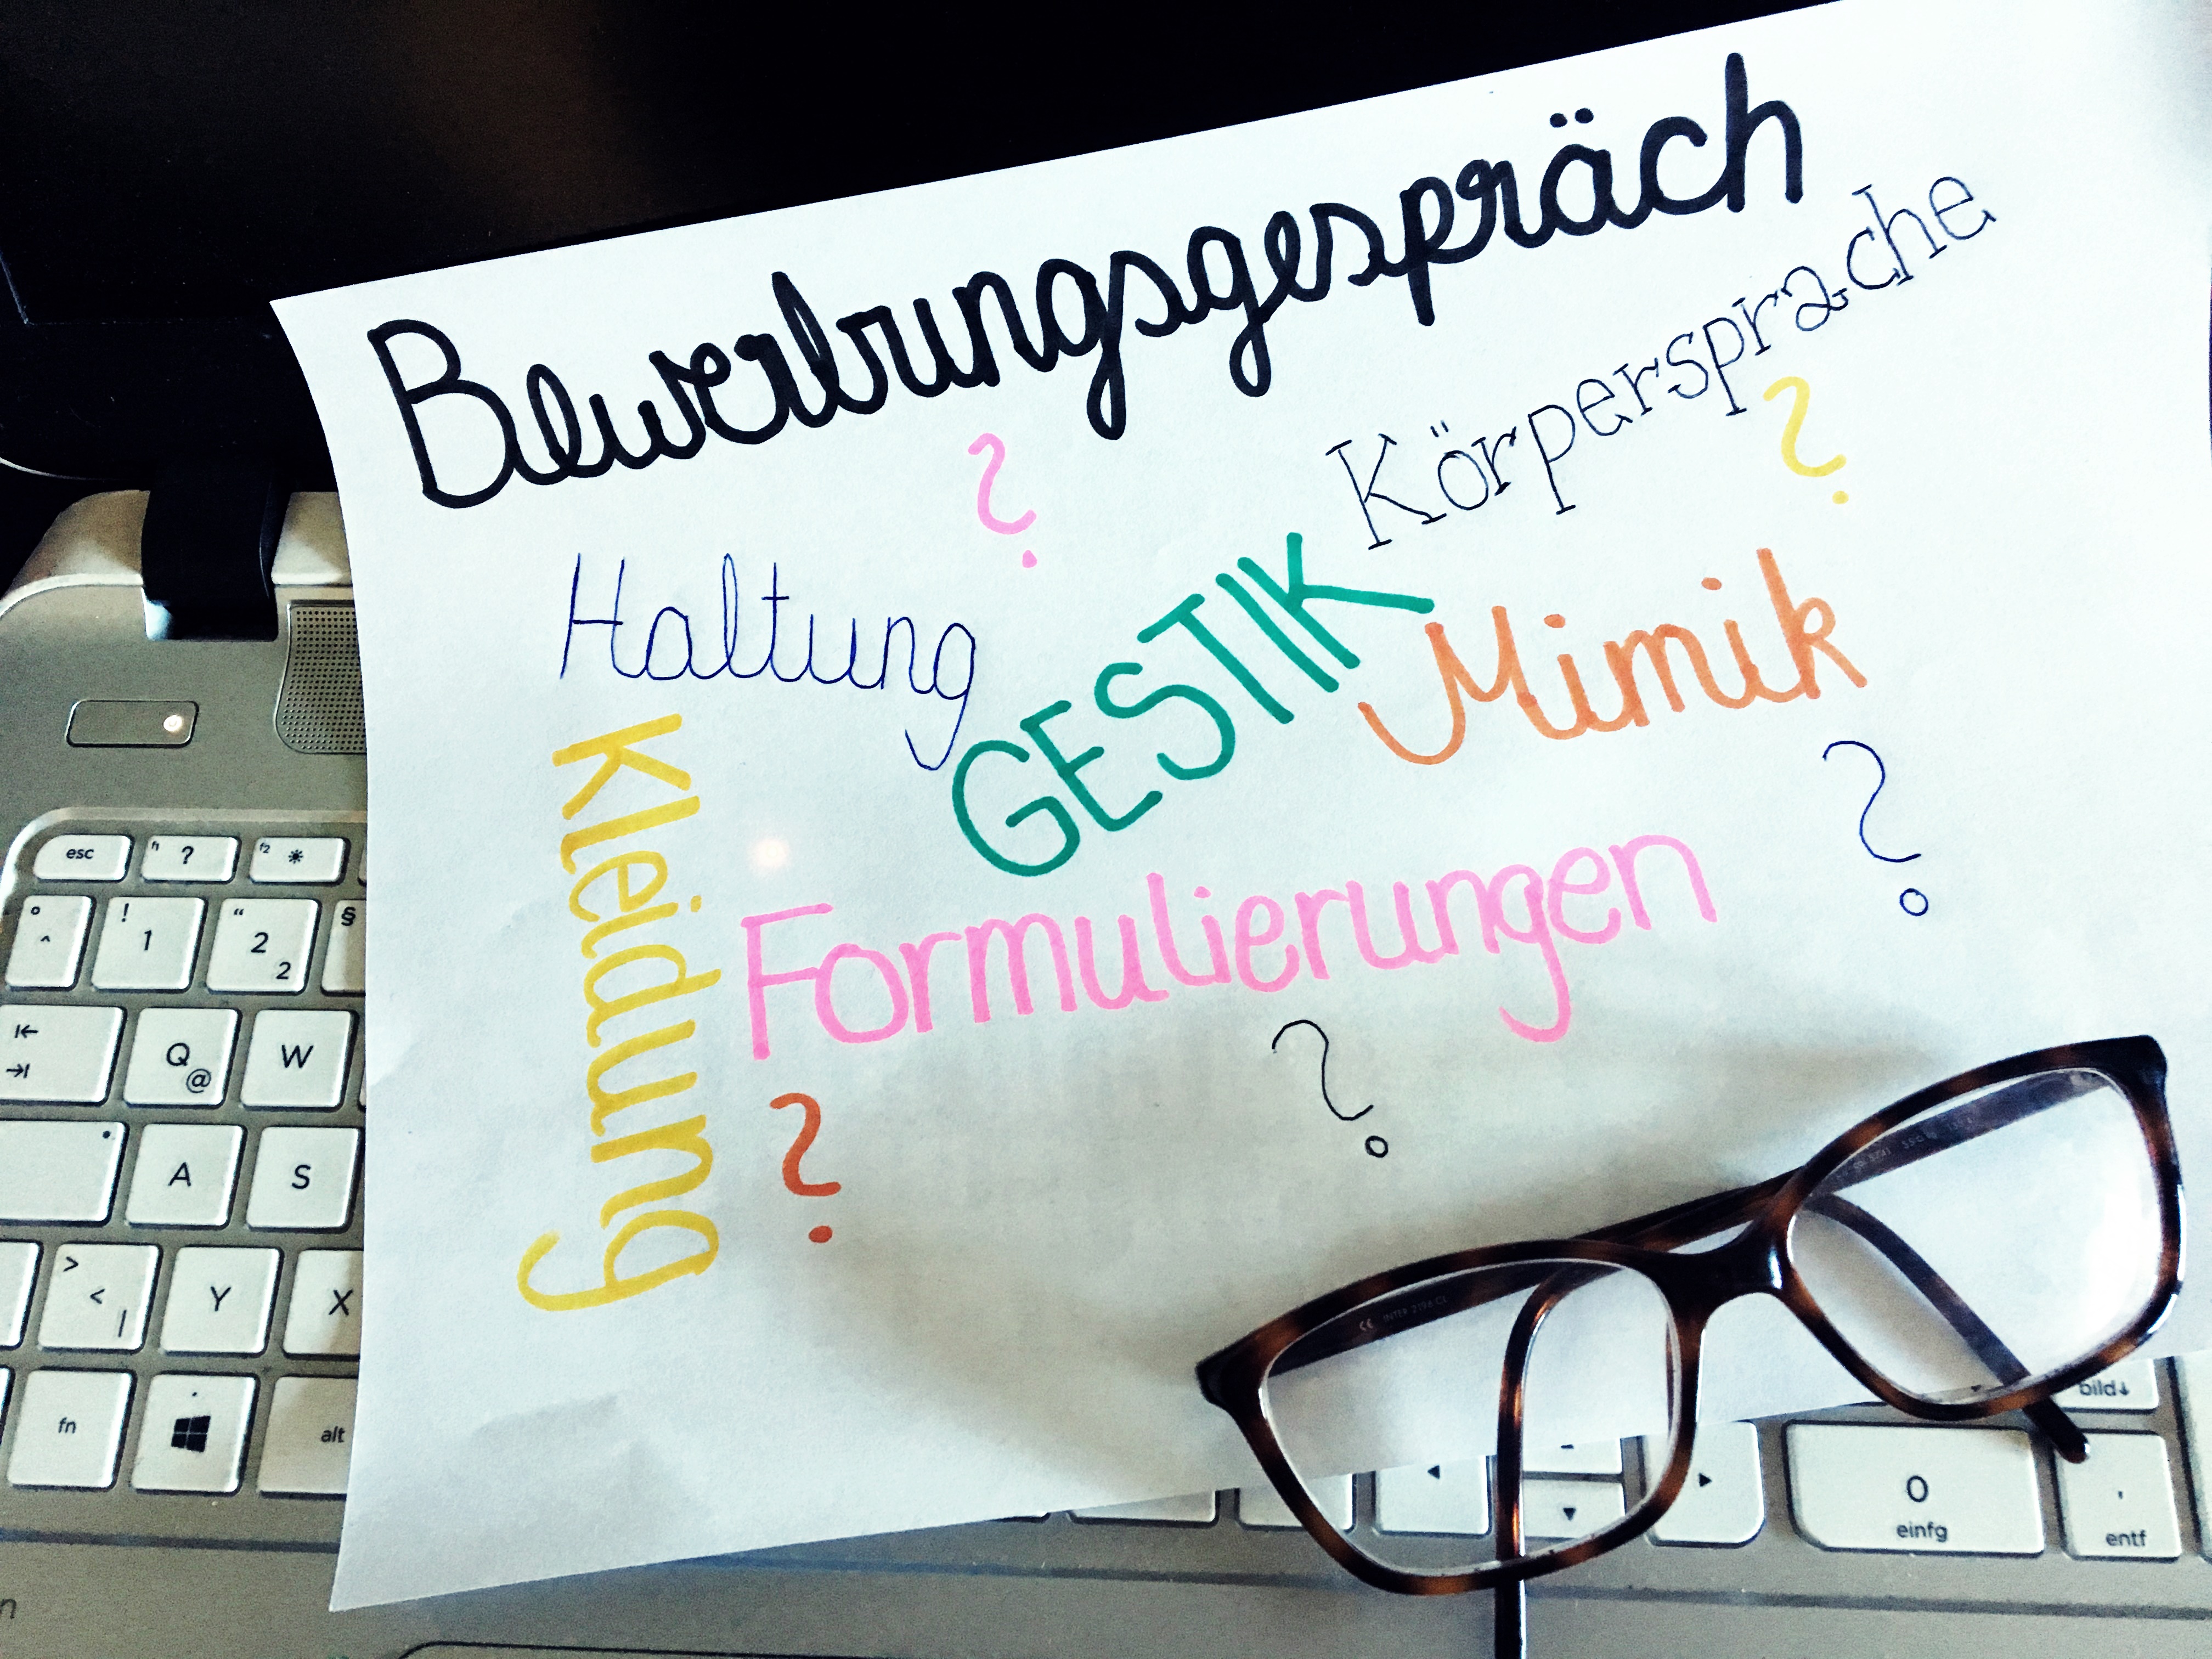 Bewerbungsgespräch
Körpersprache
?
?
Haltung
GESTIK
Mimik
Kleidung
?
Formulierungen
?
?
esc
f1 ?
f2
° ^
! 1
" 2 2
§
Q @
W
A
S
> < |
Y
X
fn
alt
bild↓
0 einfg
, entf
CE INTER 2196 CL
n